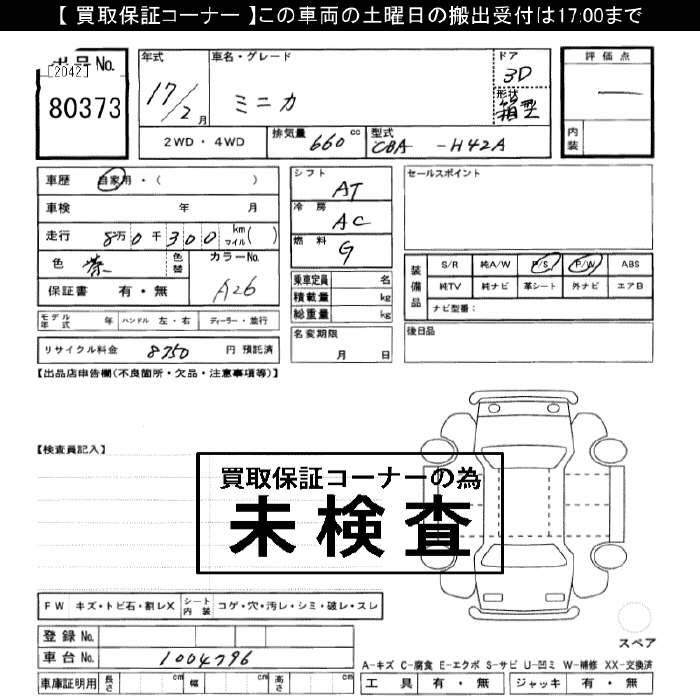 【 買取保証コーナー 】この車両の土曜日の搬出受付は17:00まで
号No.
2042
80373
年式 17/2月
車名・グレード ミニカ
ドア 3D
形状 箱型
評価点 —
内装
2WD・4WD
排気量 660 cc
型式 CBA -H42A
車歴 自家用・( )
車検 年 月
走行 8万0千300 km マイル( )
色 茶 色替
カラーNo. A26
保証書 有・無
シフト AT
冷房 AC
燃料 G
乗車定員 名
積載量 kg
総重量 kg
セールスポイント
装備品
S/R 純A/W P/S P/W ABS
純TV 純ナビ 革シート 外ナビ エアB
ナビ型番:
モデル年式 年 ハンドル 左・右 ディーラー・並行
名変期限 月 日
後日品
リサイクル料金 8750 円 預託済
【出品店申告欄(不良箇所・欠品・注意事項等)】
【検査員記入】
買取保証コーナーの為
未検査
FW キズ・トビ石・割レX シート内装 コゲ・穴・汚レ・シミ・破レ・スレ
登録No.
車台No. 1004796
スペア
A-キズ C-腐食 E-エクボ S-サビ U-凹ミ W-補修 XX-交換済
車庫証明用 長さ cm 幅 cm 高さ cm
工具 有・無 ジャッキ 有・無